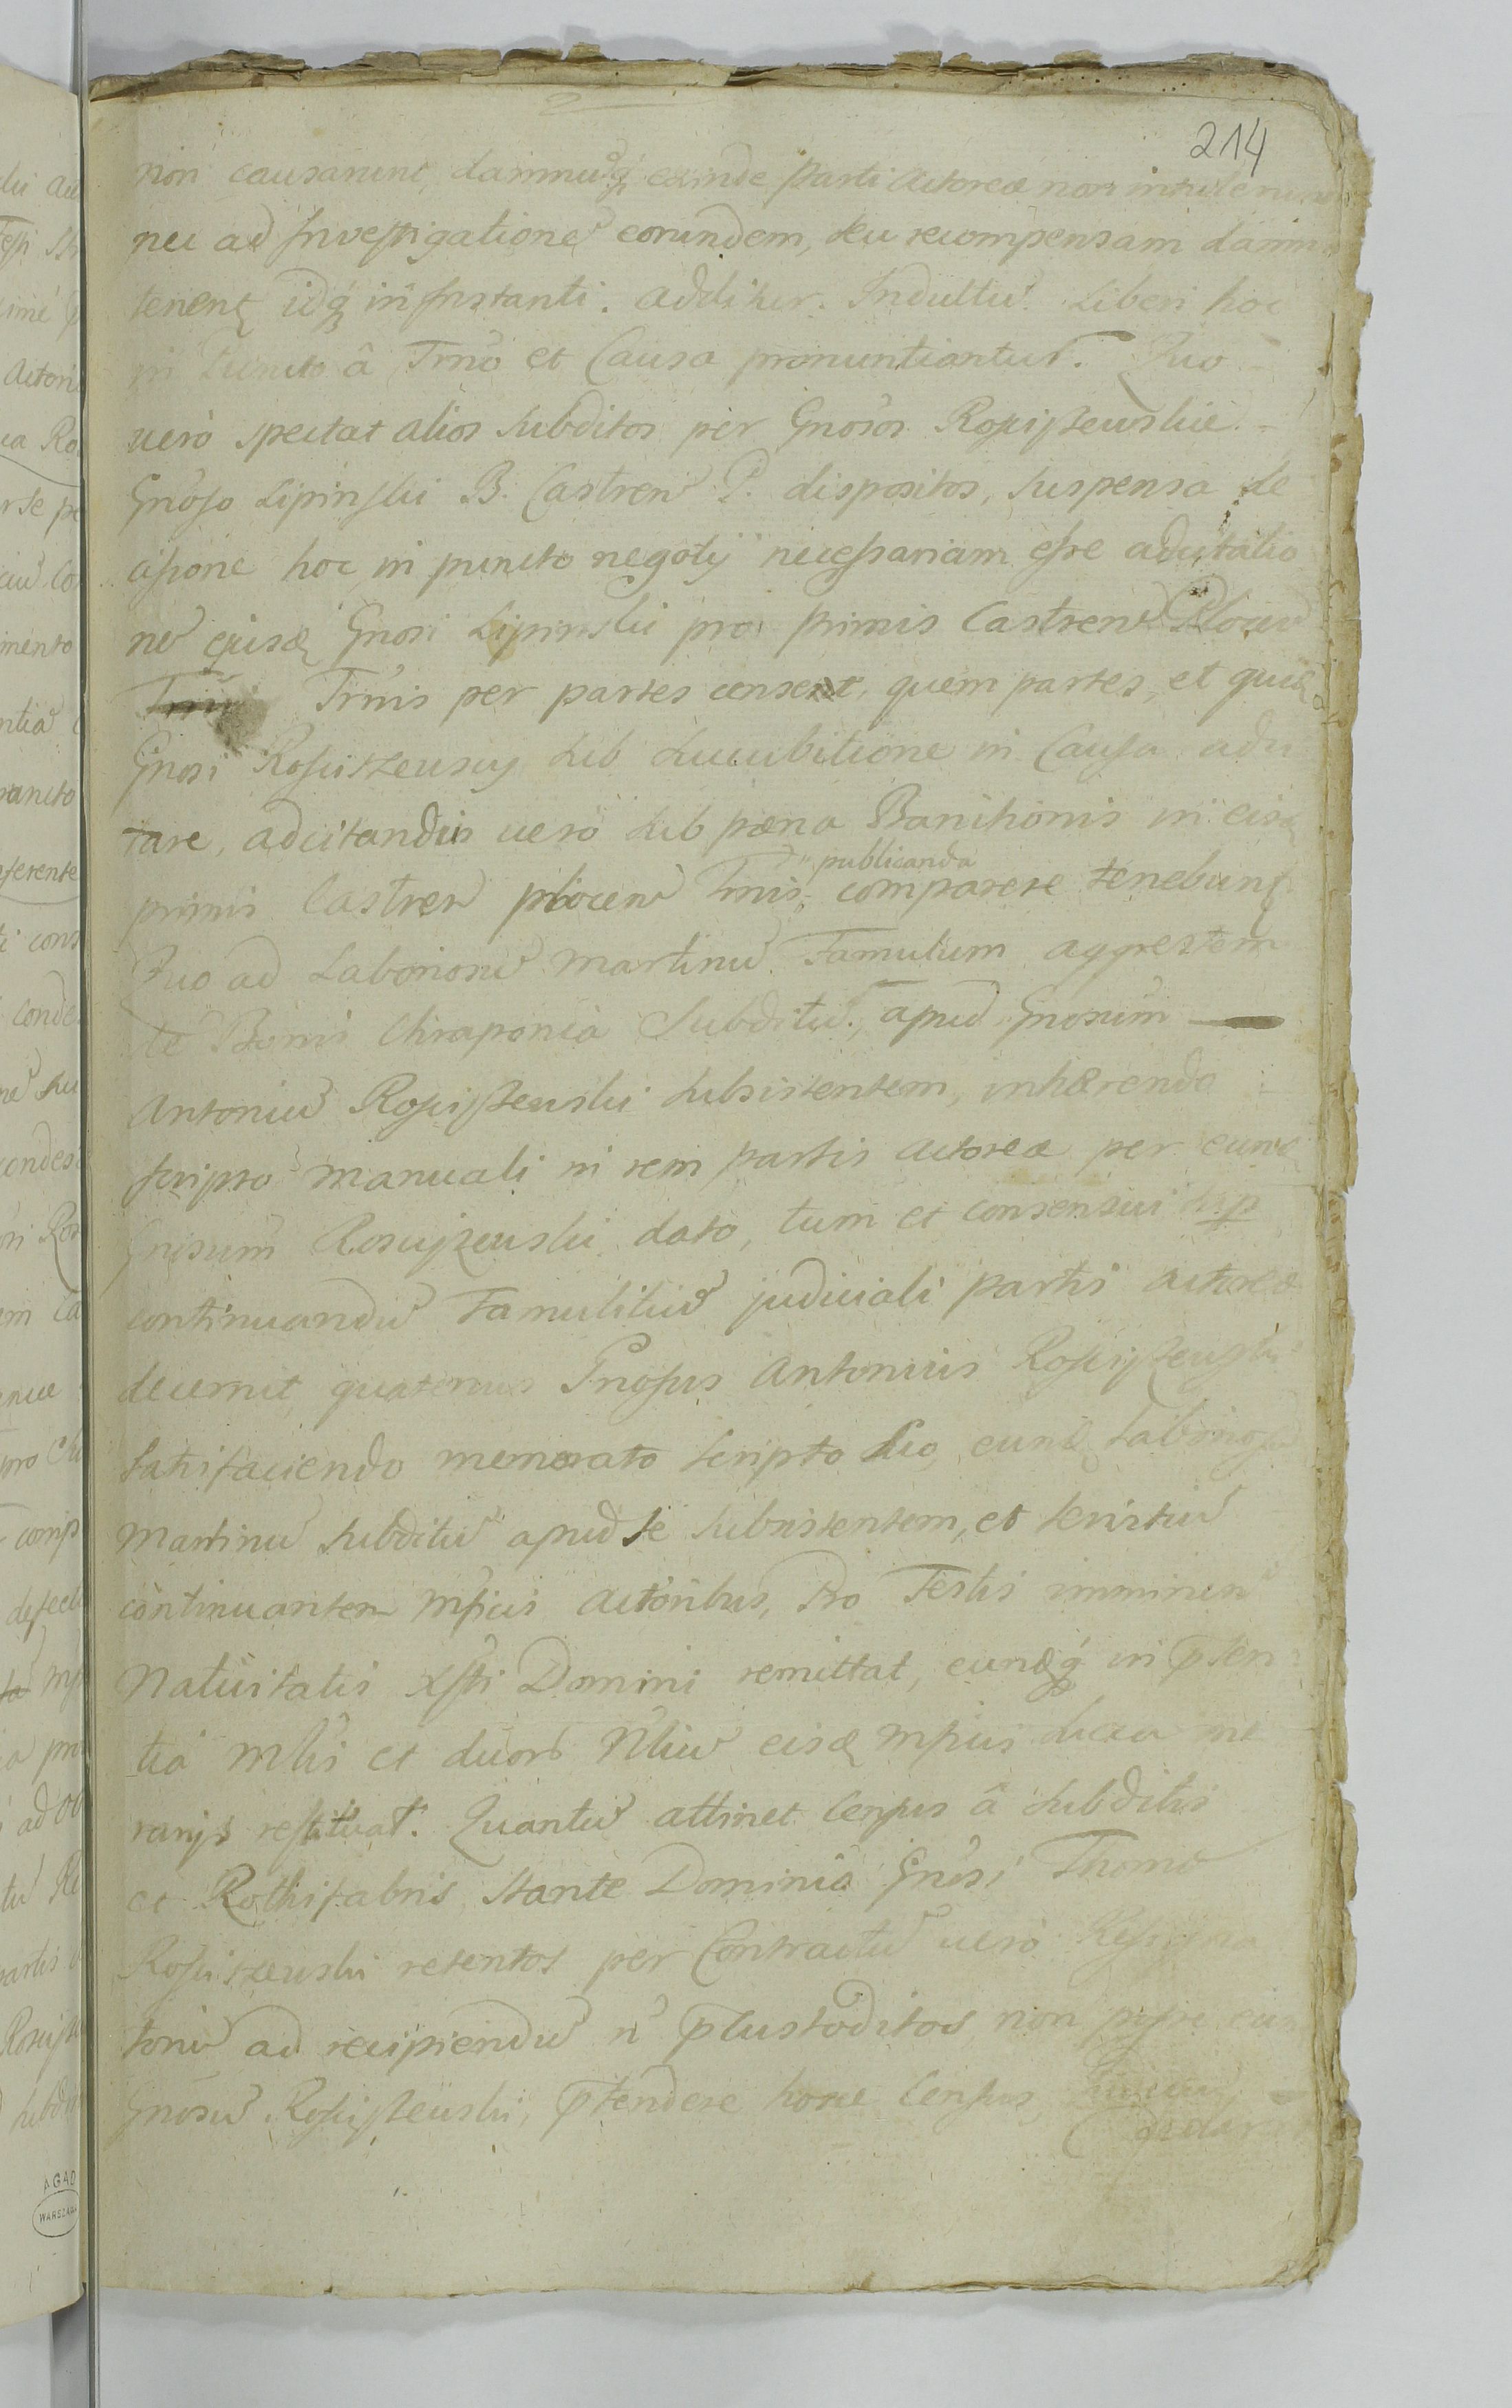 214
non causarunt, damnuq exinde parti Actoreæ non intulerunt
nec ad Investigatione eorundem, seu recompensam damni
tenent idq in Instanti. additur. Indultu. Liberi hoc
in Puncto â Trno et Causa pronuntiantur. Quo
uero spectat alios subditos per Gnosos Rościszewskie
Gnoso Lipinski B. Castren P. dispositos, suspensa de
cisione hoc in puncto negotij necessariam esse adcitatio
ne ejusd Gnosi Lipinski pro primis Castren Plocen
Trnis per partes censent, quem partes, et quid
Gnosi Rosciszewscy sub succubitione in Causa adci
tare, adcitandus uero sub pæna Banitionis in eisd
publicanda
primis Castren plocen Trnis, comparere tenebunt
Quo ad Laboriosu Martinu Famulum aggrestem
de Bonis Chraponia Subditu, apud Gnosum
Antoniu Rościszewski subsistentem, inhærendo
scripto manuali in rem partis actoreæ per eund
Gnosum Rosciszewski dato, tum et consensui
continuandu Famulitiu judiciali partis actoreæ
decernit quatenus Gnosus Antonius Rościszewski
satisfaciendo memorato scripto suo, eund Laboriosu
Martinu subditu apud se subsistentem, et seruitiu
continuantem Mficis Actoribus, pro Festis imminen
Natiuitatis Xsti Domini remittat, eundq in pñsen
tia Mlis et duor Nliu eisd Mficis
restituat. Quantu attinet Census â subditis
et Rothifabris, stante Dominio Gnosi Thomæ
Rościszewski retentos per Contractu uero Resigna
toriu ad recipiendu n pcustoditos non posse eun
Gnosu Rościszewski, ptendere hosce Census